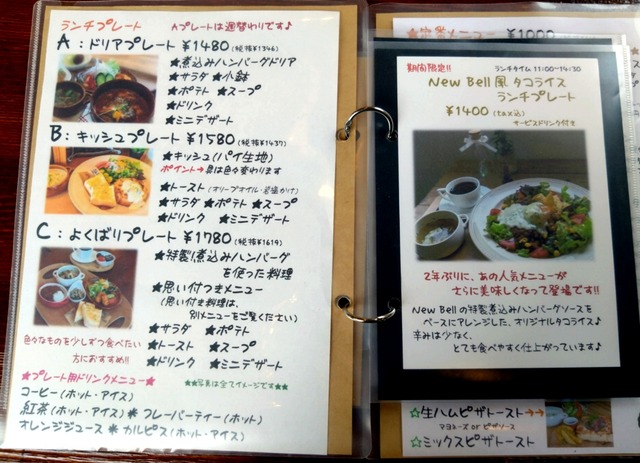 ランチプレート　Aプレートは週替わりです♪
A：ドリアプレート ¥1480(税抜¥1346)
★煮込みハンバーグドリア
★サラダ ★小鉢
★ポテト ★スープ
★ドリンク
★ミニデザート
B：キッシュプレート ¥1580(税抜¥1437)
★キッシュ(パイ生地)
ポイント→具は色々変わります
★トースト(オリーブオイル・岩塩かけ)
★サラダ ★ポテト ★スープ
★ドリンク ★ミニデザート
C：よくばりプレート ¥1780(税抜¥1619)
★特製煮込みハンバーグ
を使った料理
★思い付きメニュー
(思い付き料理は、
別メニューをご覧ください)
★サラダ ★ポテト
★トースト ★スープ
★ドリンク ★ミニデザート
色々なものを少しずつ食べたい
方におすすめ!!
★プレート用ドリンクメニュー★
★★写真は全てイメージです★★
コーヒー(ホット・アイス)
紅茶(ホット・アイス)＊フレーバーティー(ホット)
オレンジジュース ＊ カルピス(ホット・アイス)
¥1000
期間限定!!　ランチタイム 11:00〜14:30
New Bell風 タコライス
ランチプレート
¥1400 (tax込)
サービスドリンク付き
2年ぶりに、あの人気メニューが
さらに美味しくなって登場です!!
New Bellの特製煮込みハンバーグソースを
ベースにアレンジした、オリジナルタコライス♪
辛みは少なく、
とても食べやすく仕上がっています♪
☆生ハムピザトースト→→
マヨネーズ or ピザソース
☆ミックスピザトースト